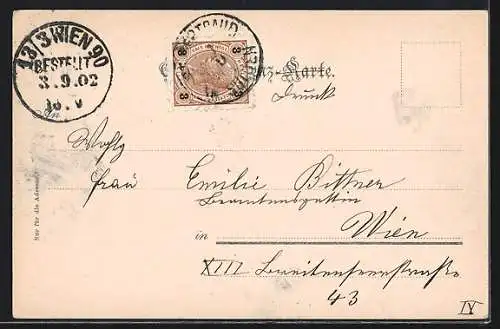 13/3 WIEN 90
BESTELLT
3.9.02
10.V
3 3
Correspondenz-Karte.
Druck
An
Wohlg
Frau Emilie Bittner
Beamtensgattin
in Wien
XIII Breitenseerstraße
43
Nur für die Adresse.
IV